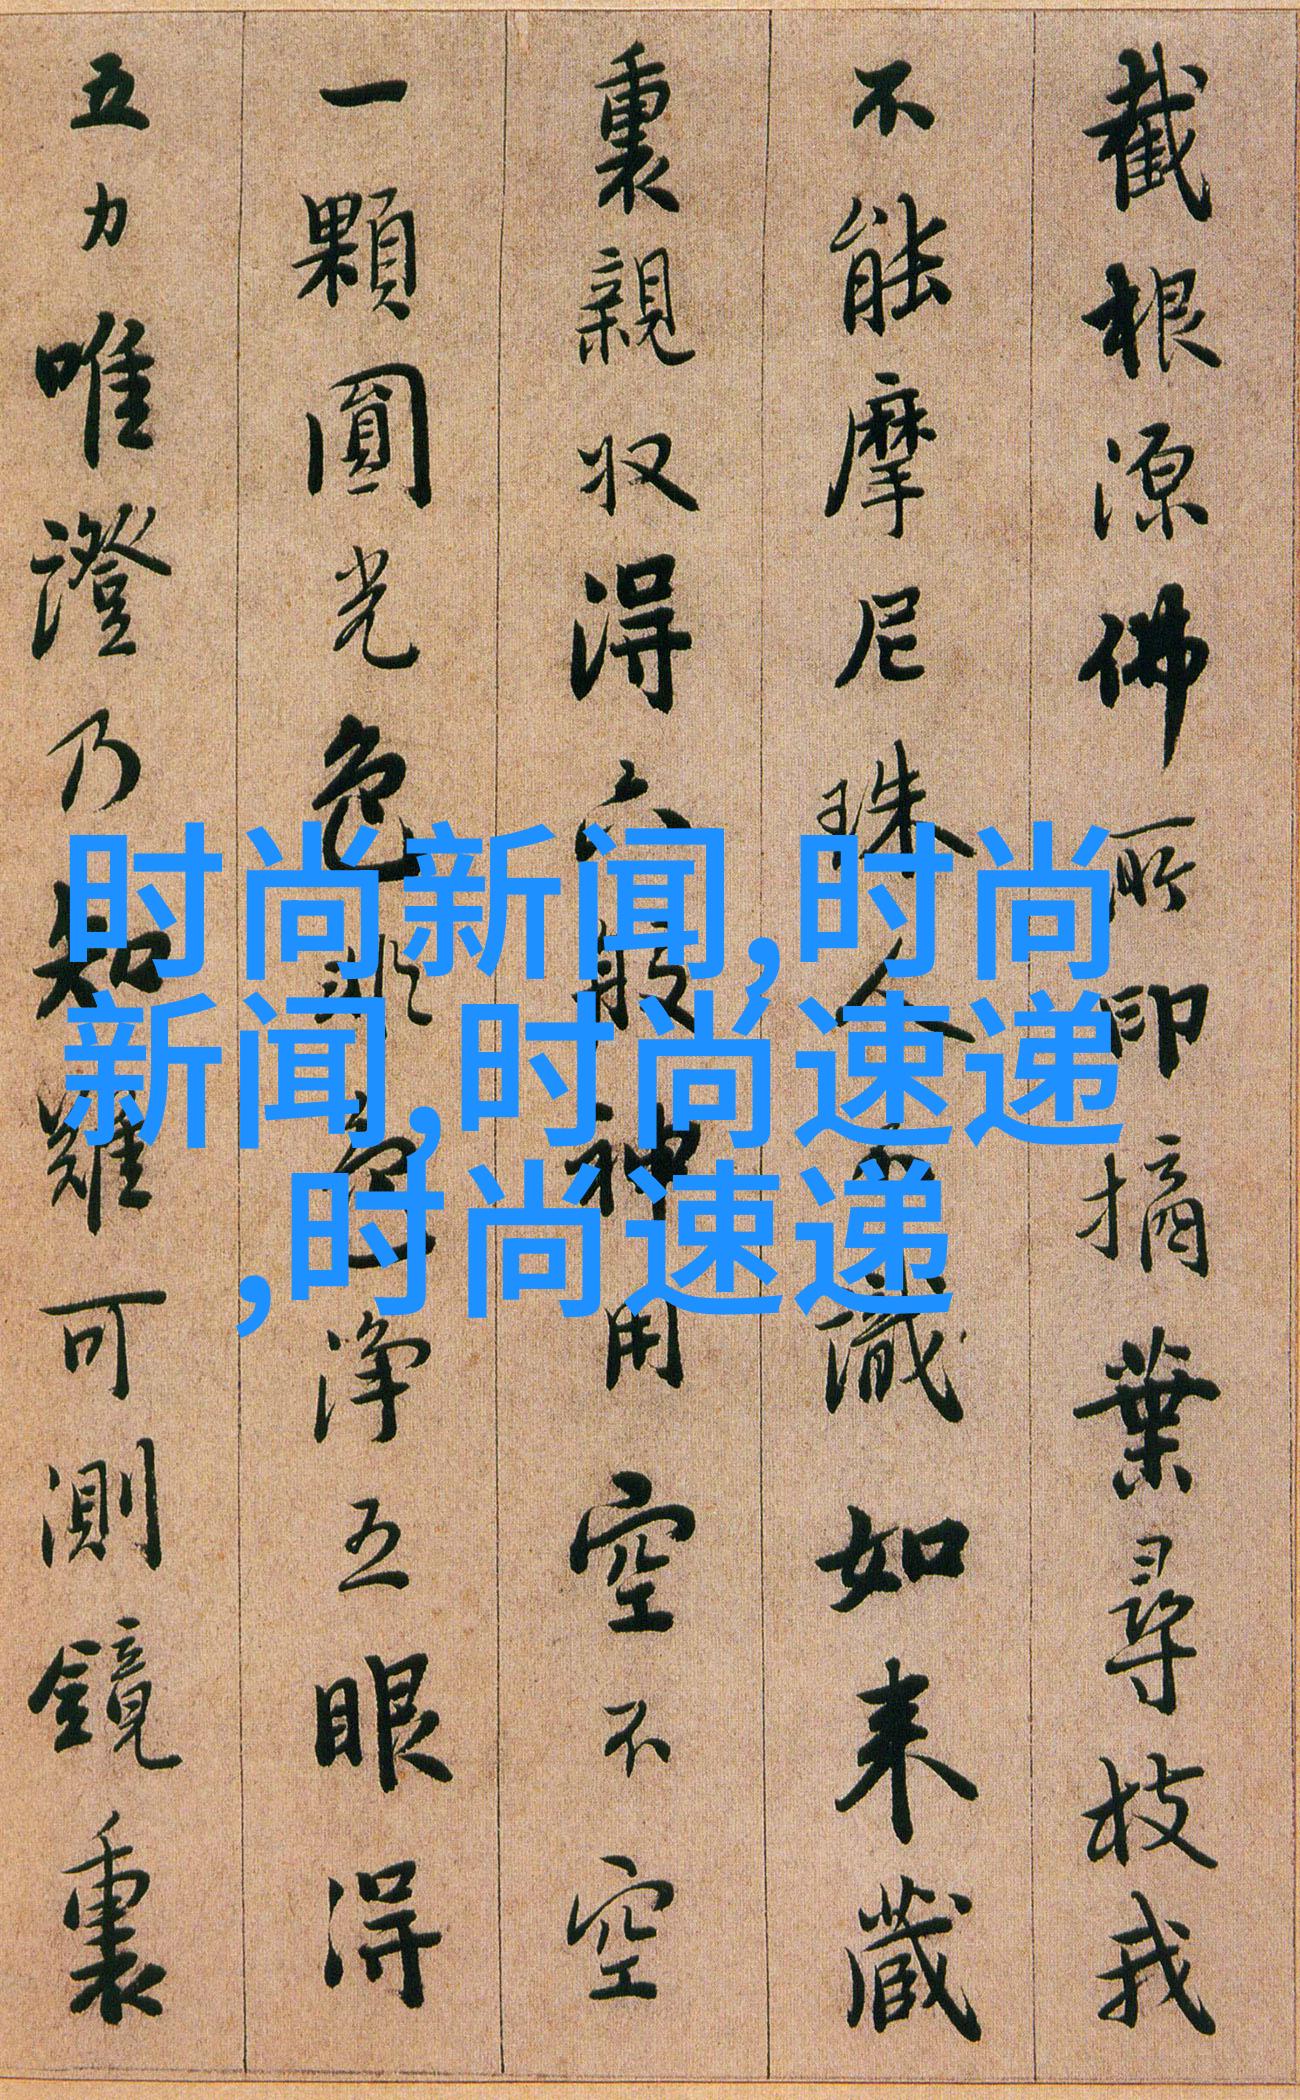 截根源佛所印摘葉尋枝我
不能摩尼珠人不識如来藏
裏親収得六般神用空不空
一顆圓光色非色淨五眼得
五力唯證乃知難可測鏡裏
时尚新闻,时尚
新闻,时尚速递
,时尚速递